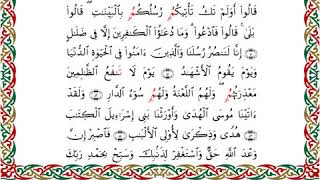 قَالُوٓا۟ أَوَلَمْ تَكُ تَأْتِيكُمْ رُسُلُكُم بِٱلْبَيِّنَـٰتِ ۖ قَالُوا۟
بَلَىٰ ۚ قَالُوا۟ فَٱدْعُوا۟ ۗ وَمَا دُعَـٰٓؤُا۟ ٱلْكَـٰفِرِينَ إِلَّا فِى ضَلَـٰلٍ
إِنَّا لَنَنصُرُ رُسُلَنَا وَٱلَّذِينَ ءَامَنُوا۟ فِى ٱلْحَيَوٰةِ ٱلدُّنْيَا
وَيَوْمَ يَقُومُ ٱلْأَشْهَـٰدُ ۝٥١ يَوْمَ لَا تَنفَعُ ٱلظَّـٰلِمِينَ
مَعْذِرَتُهُمْ ۖ وَلَهُمُ ٱللَّعْنَةُ وَلَهُمْ سُوٓءُ ٱلدَّارِ ۝٥٢ وَلَقَدْ
ءَاتَيْنَا مُوسَى ٱلْهُدَىٰ وَأَوْرَثْنَا بَنِىٓ إِسْرَٰٓءِيلَ ٱلْكِتَـٰبَ
۝٥٣ هُدًى وَذِكْرَىٰ لِأُو۟لِى ٱلْأَلْبَـٰبِ ۝٥٤ فَٱصْبِرْ إِنَّ
وَعْدَ ٱللَّهِ حَقٌّ وَٱسْتَغْفِرْ لِذَنۢبِكَ وَسَبِّحْ بِحَمْدِ رَبِّكَ